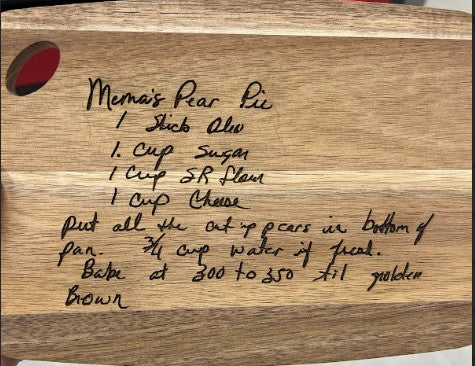 Mema's Pear Pie
1 Stick Oleo
1. Cup Sugar
1 Cup SR flour
1 Cup Cheese
put all the cut up pears in bottom of
pan. 3/4 cup water if fresh.
Bake at 300 to 350 til golden
Brown